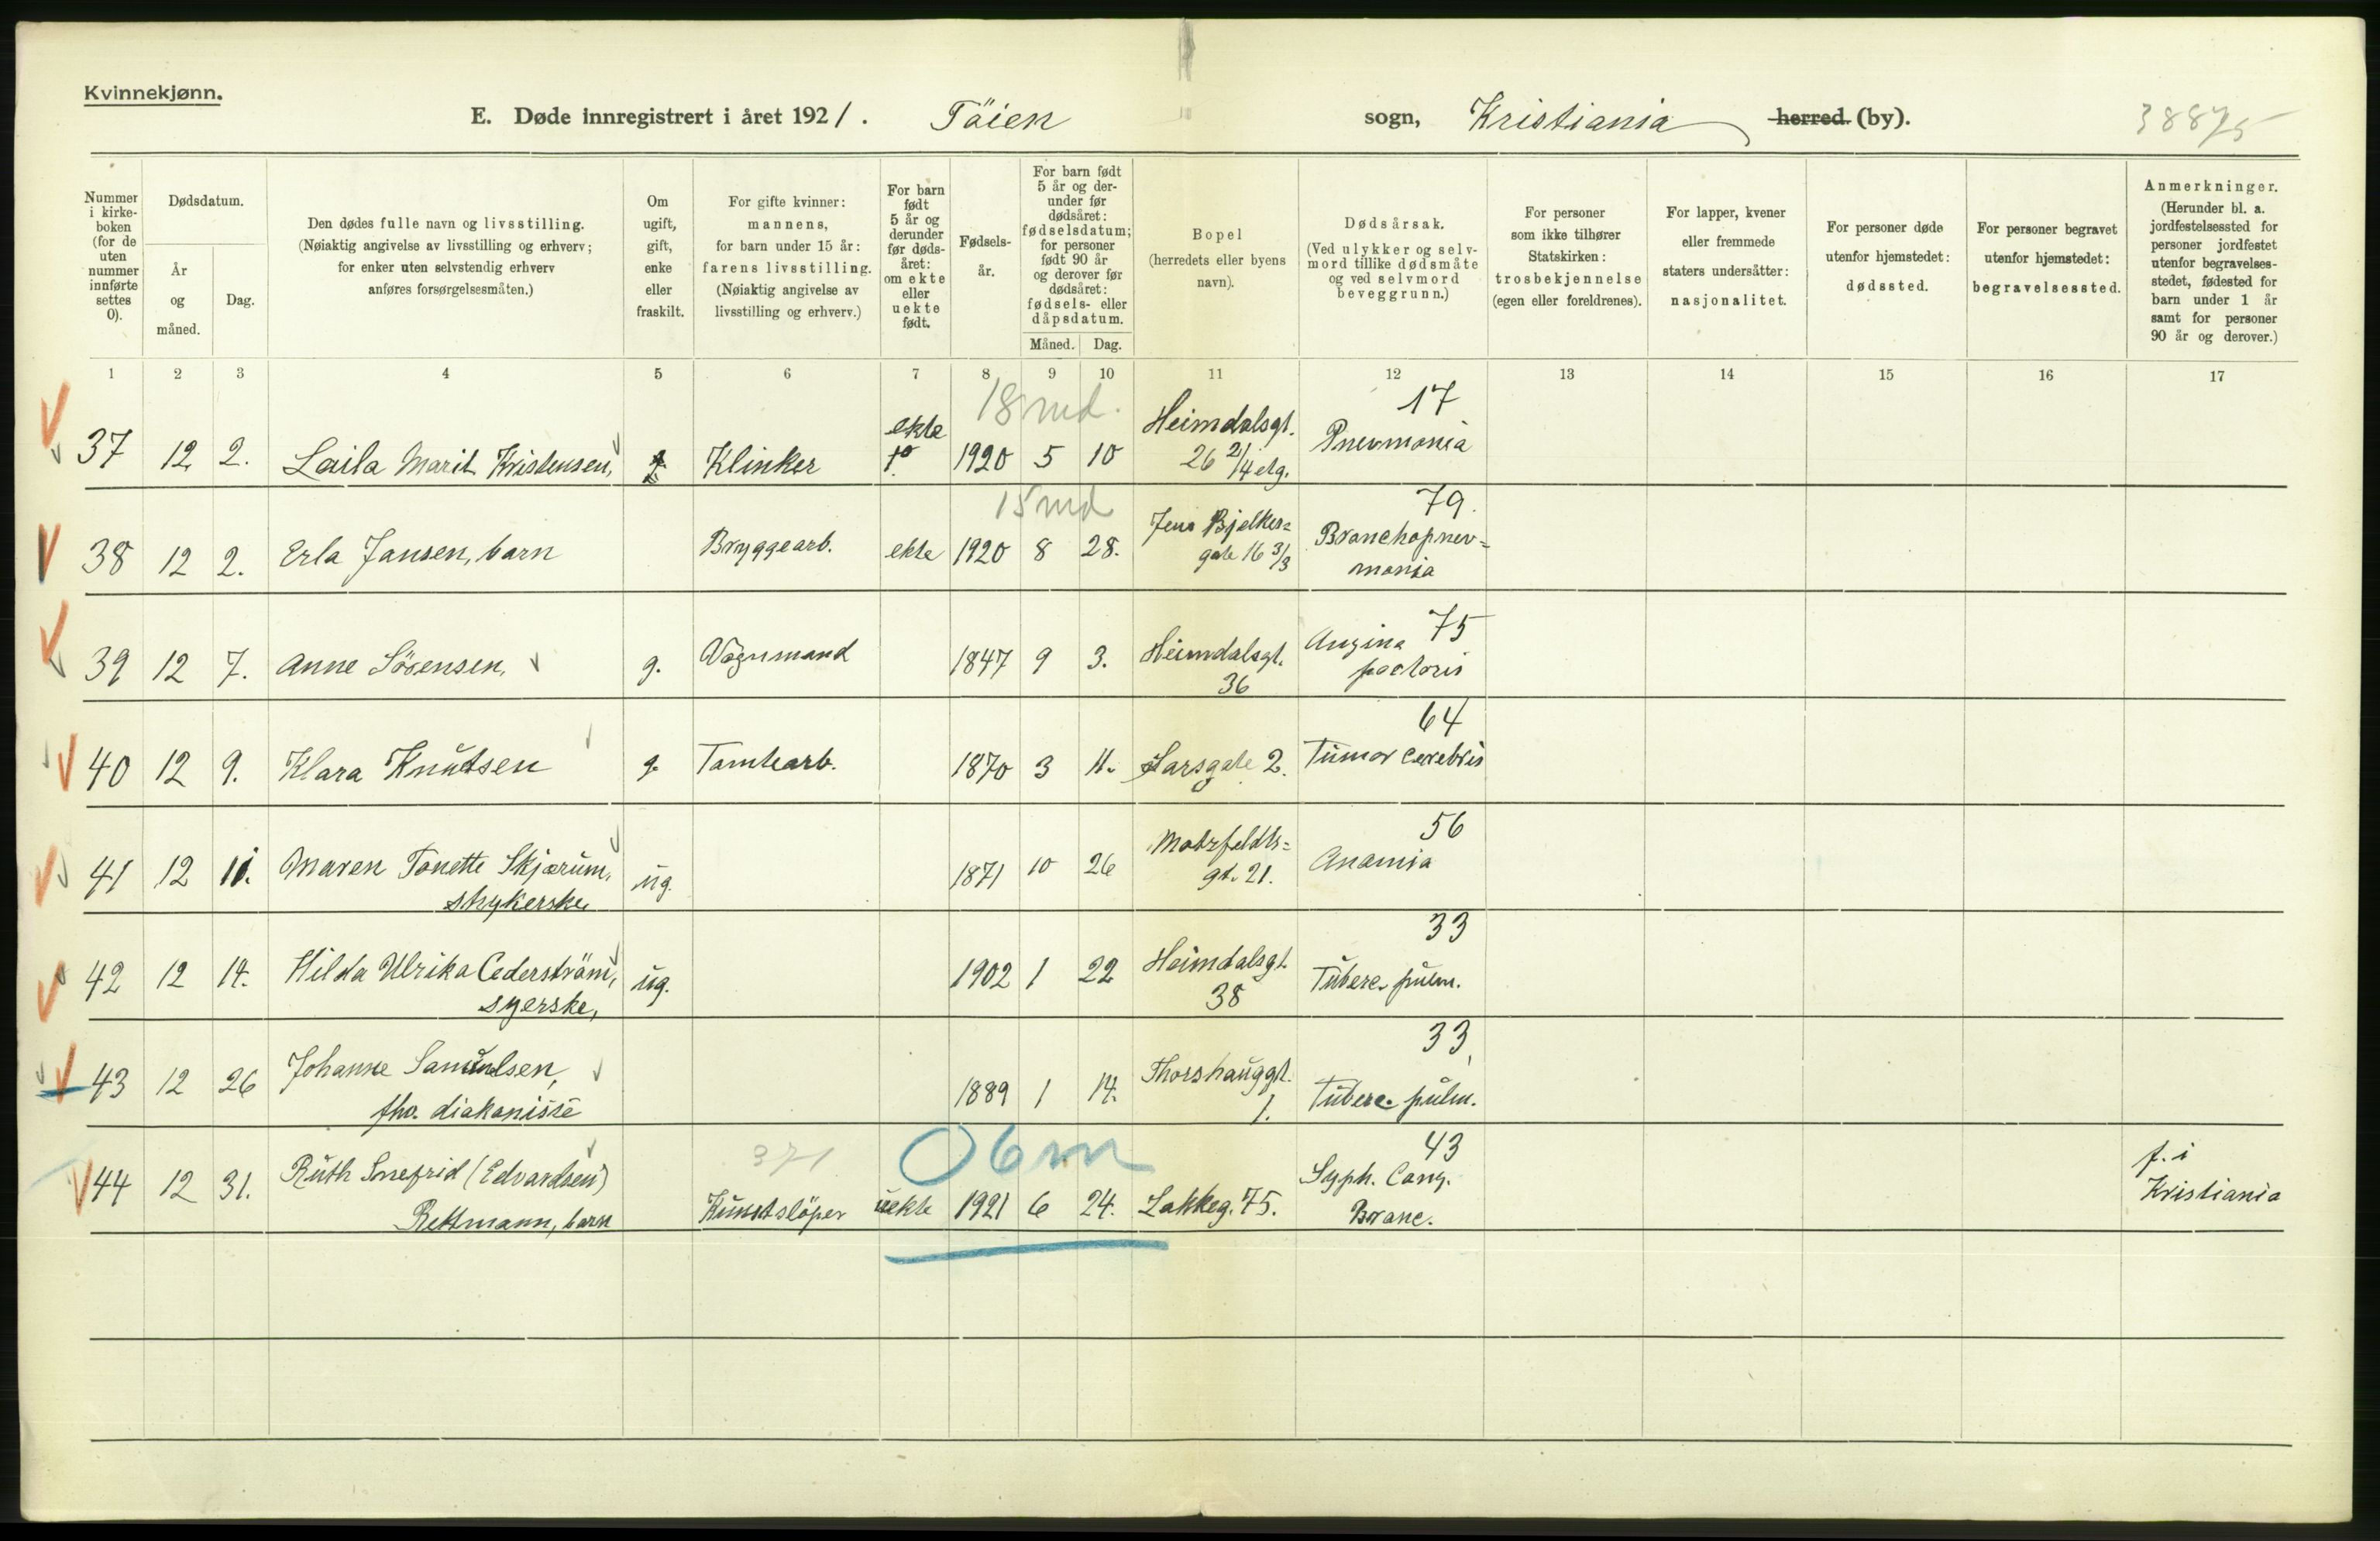 Kvinnekjønn.
E. Døde innregistrert i året 1921. Töien sogn, Kristiania herred (by).
38875
Nummer i kirkeboken (for de uten nummer innførte settes 0).
Dødsdatum.
År og måned.
Dag.
Den dødes fulle navn og livsstilling.
(Nøiaktig angivelse av livsstilling og erhverv; for enker uten selvstendig erhverv anføres forsørgelsesmåten.)
Om ugift, gift, enke eller fraskilt.
For gifte kvinner: mannens, for barn under 15 år: farens livsstilling. (Nøiaktig angivelse av livsstilling og erhverv.)
For barn født 5 år og derunder før dødsåret: om ekte eller uekte født.
Fødselsår.
For barn født 5 år og derunder før dødsåret: fødselsdatum; for personer født 90 år og derover før dødsåret: fødsels- eller dåpsdatum.
Måned. Dag.
Bopel (herredets eller byens navn).
Dødsårsak. (Ved ulykker og selvmord tillike dødsmåte og ved selvmord beveggrunn.)
For personer som ikke tilhører Statskirken: trosbekjennelse (egen eller foreldrenes).
For lapper, kvener eller fremmede staters undersåtter: nasjonalitet.
For personer døde utenfor hjemstedet: dødssted.
For personer begravet utenfor hjemstedet: begravelsessted.
Anmerkninger. (Herunder bl. a. jordfestelsessted for personer jordfestet utenfor begravelsesstedet, fødested for barn under 1 år samt for personer 90 år og derover.)
1 2 3 4 5 6 7 8 9 10 11 12 13 14 15 16 17
18 md. 17
37 12. 2. Laila Marit Kristensen, Klinker ekte 1920 5 10 Heimdalsgt. 26 2/4 etg. Pnevmonia
15 md 79.
38 12 2. Erla Jansen, barn Bryggearb. ekte 1920 8 28. Jens Bjelkes=
gate 16 3/3 Bronchopnev=
monia
75
39 12 7. Anne Sörensen, g. Vognmand 1847 9 3. Heimdalsgt.
36 Angina
pectoris
64
40 12 9. Klara Knutsen g. Tomtearb. 1870 3 11. Larsgate 2. Tumor cerebris
56
41 12 11. Maren Tonette Skjærum,
strykerske, ug. 1871 10 26 Motzfeldts=
gt. 21. Anæmia
33
42 12 14. Hilda Ulrika Cederström,
syerske, ug. 1902 1 22 Heimdalsgt.
38 Tuberc. pulm.
33
43 12 26 Johanne Samuelsen,
fho. diakonisse 1889 1 14. Thorshauggt.
1. Tuberc. pulm.
371 06m 43
44 12 31. Ruth Snefrid (Edvardsen)
Rettmann, barn Kunstslöper uekte 1921 6 24. Lakkeg. 75. Syph. Cong.
Branc. f. i
Kristiania